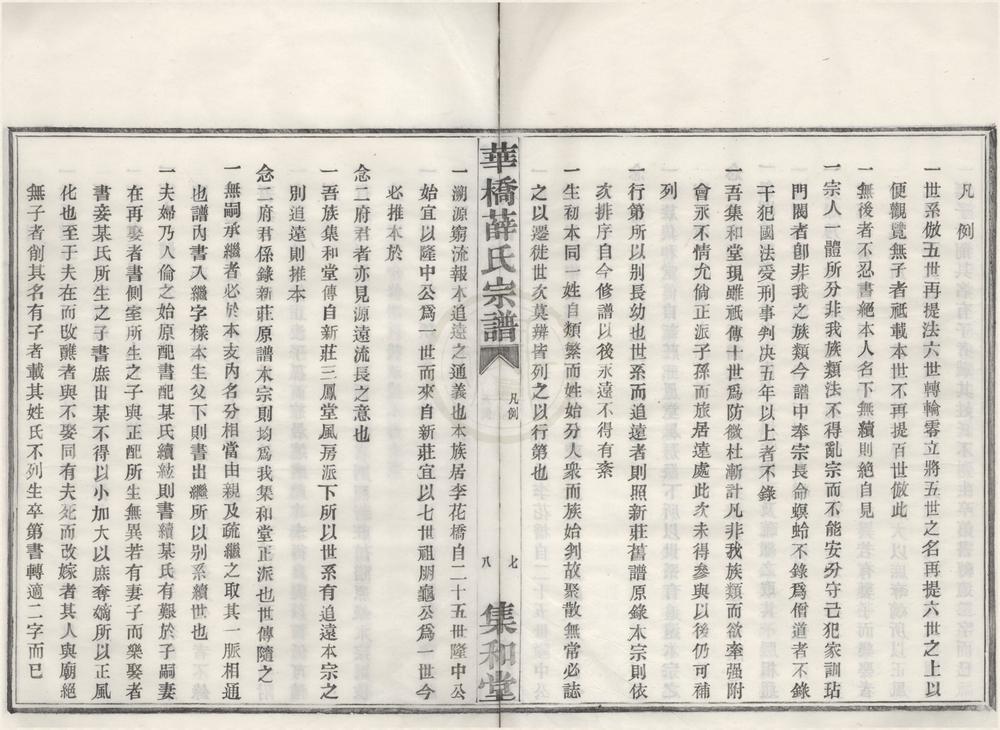 凡例
一世系倣五世再提法六世轉輪零立將五世之名再提六世之上以
便觀覽無子者祇載本世不再提百世倣此
一無後者不忍書絕本人名下無續則絕自見
一宗人一體所分非我族類法不得亂宗而不能安分守己犯家訓玷
門閥者卽非我之族類今譜中奉宗長命螟蛉不錄爲僧道者不錄
干犯國法受刑事判决五年以上者不錄
一吾集和堂現雖祇傳十世爲防微杜漸計凡非我族類而欲牽强附
會永不情允倘正派子孫而旅居遠處此次未得參與以後仍可補
列
一行第所以別長幼也世系而追遠者則照新莊舊譜原錄本宗則依
次排序自今修譜以後永遠不得有紊
一生初本同一姓自類繁而姓始分人衆而族始剖故聚散無常必誌
之以遷徙世次莫辨皆列之以行第也
華橋薛氏宗譜
凡例
七
八
集和堂
一溯源窮流報本追遠之通義也本族居李花橋自二十五世隆中公
始宜以隆中公爲一世而來自新莊宜以七世祖朋龜公爲一世今
必推本於
念二府君者亦見源遠流長之意也
一吾族集和堂傳自新莊三鳳堂風房派下所以世系有追遠本宗之
別追遠則推本
念二府君係錄新莊原譜本宗則均爲我集和堂正派也世傳隨之
一無嗣承繼者必於本支內名分相當由親及疏繼之取其一脈相通
也譜內書入繼字樣本生父下則書出繼所以別系續世也
一夫婦乃人倫之始原配書配某氏續絃則書續某氏有艱於子嗣妻
在再娶者書側室所生之子與正配所生無異若有妻子而樂娶者
書妾某氏所生之子書庶出某不得以小加大以庶奪嫡所以正風
化也至于夫在而改醮者與不娶同有夫死而改嫁者其人與廟絕
無子者削其名有子者載其姓氏不列生卒第書轉適二字而已